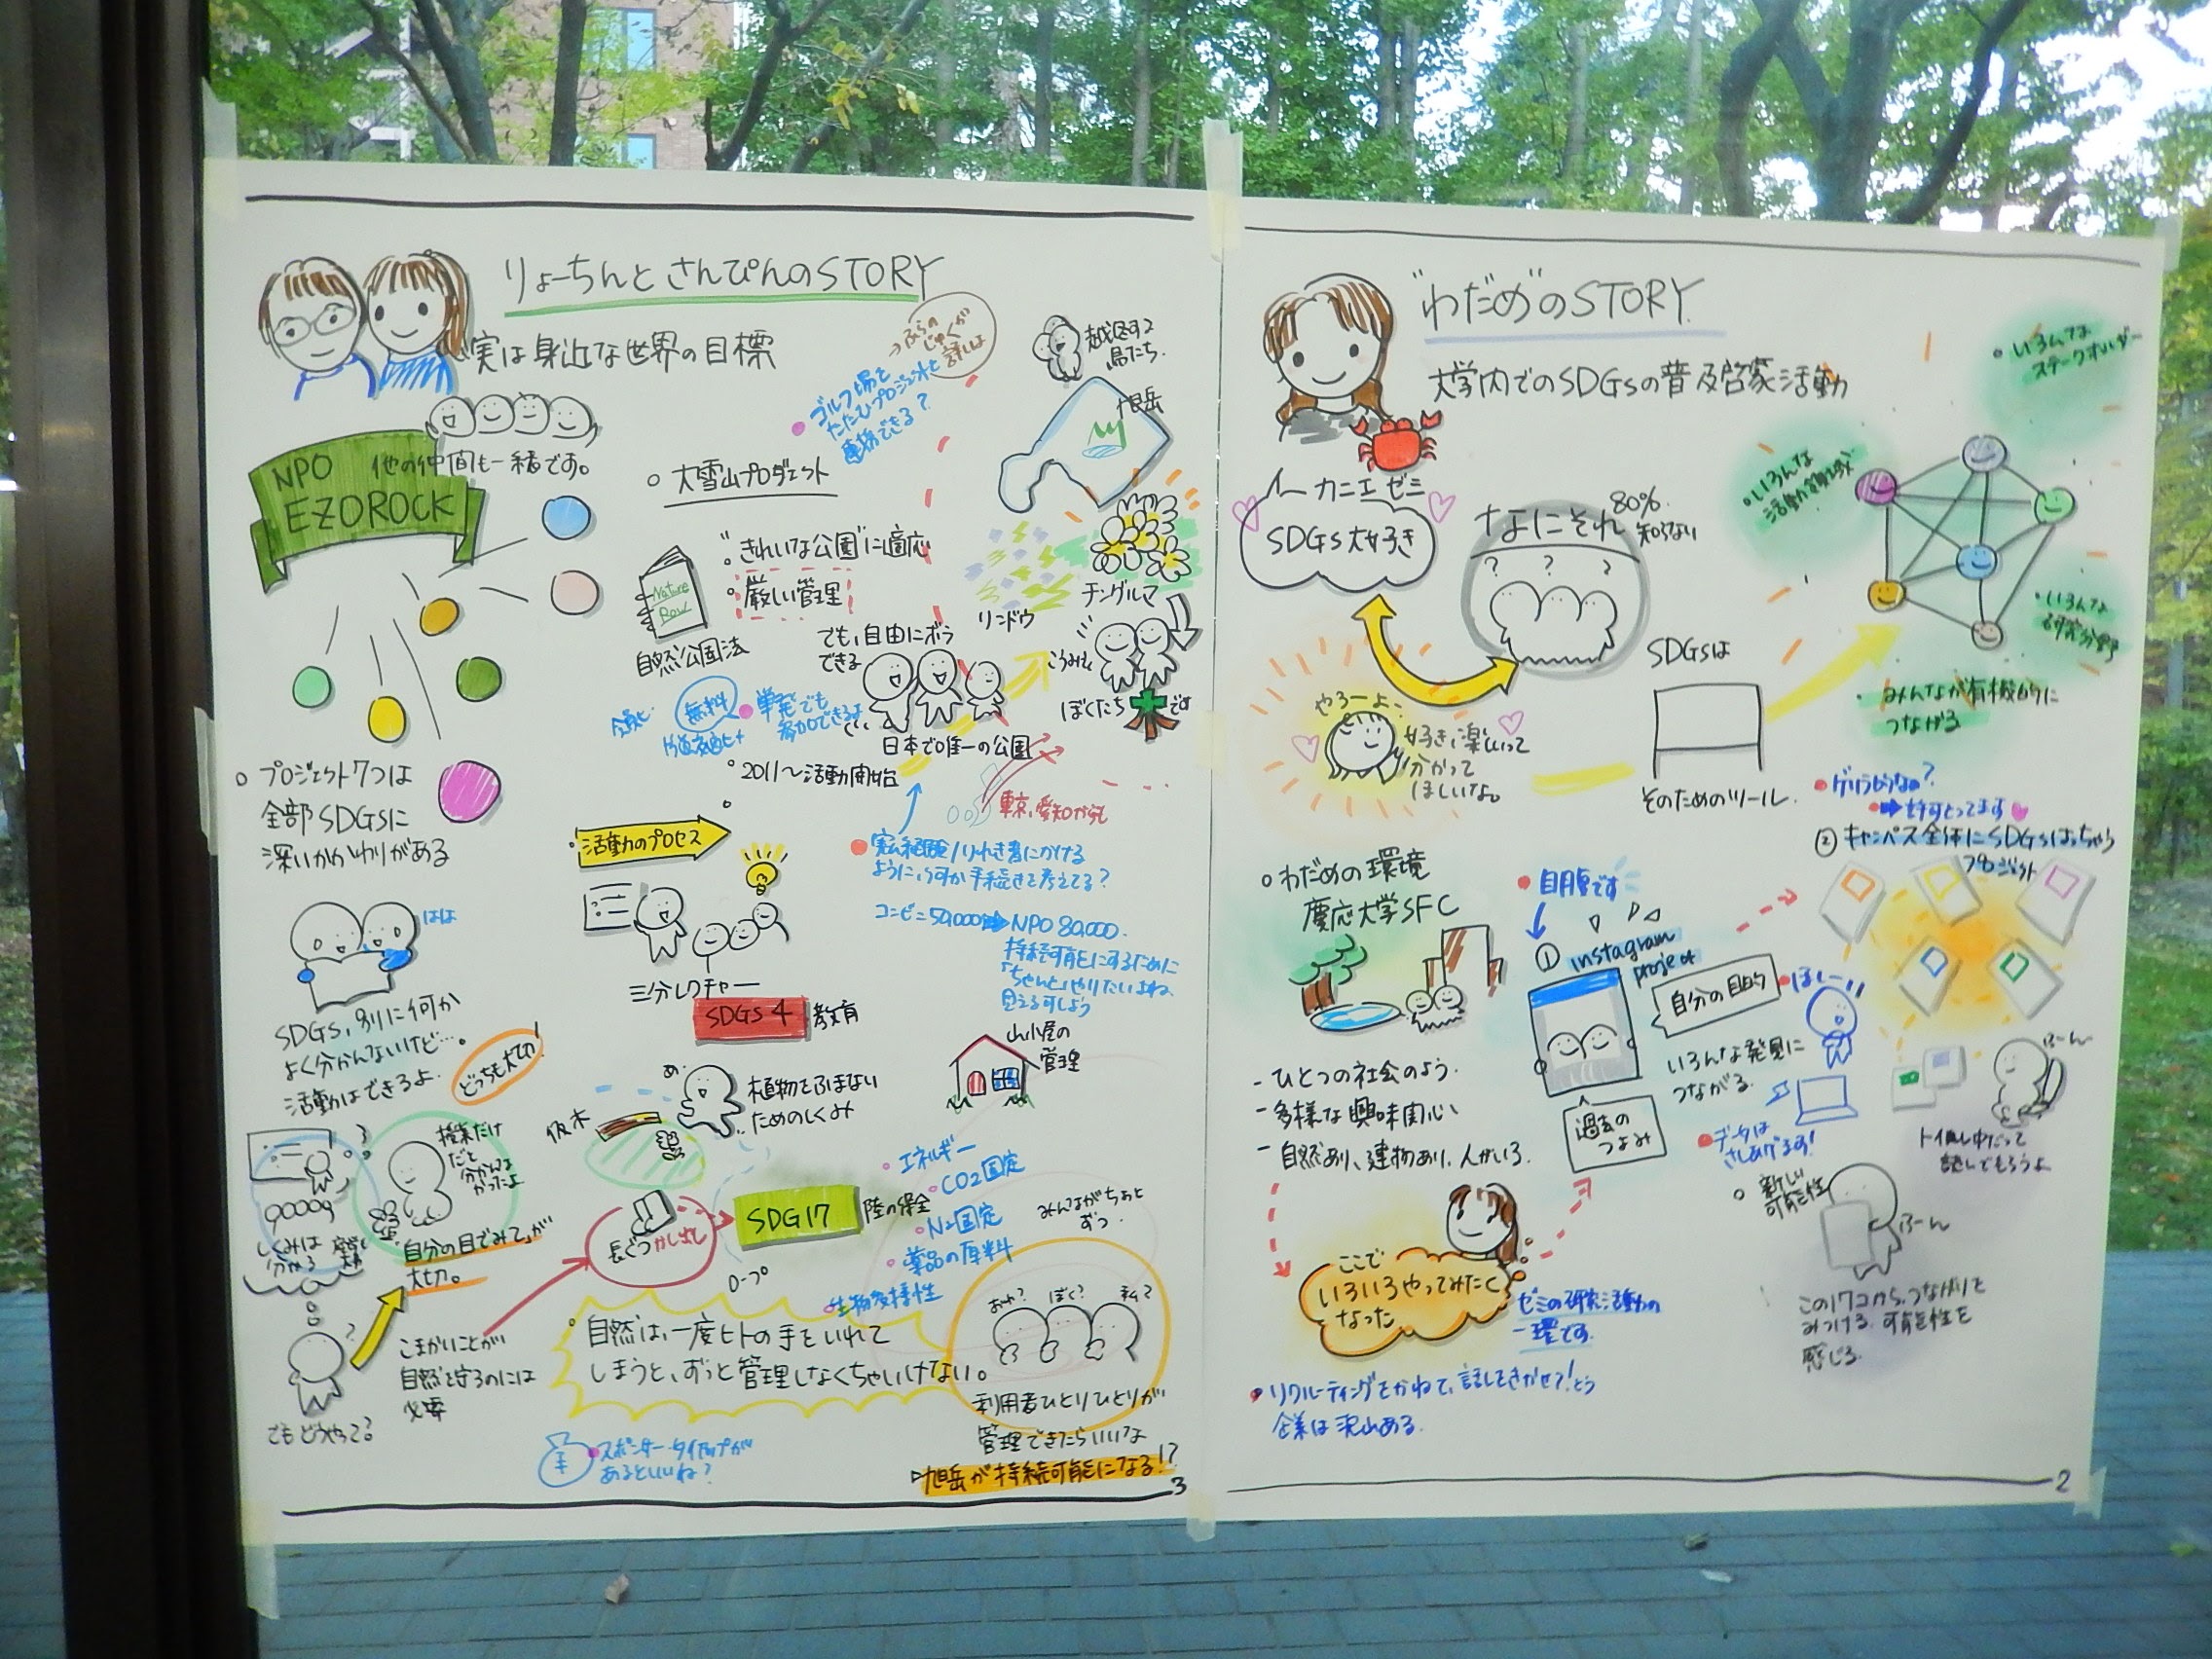 りょーちんとさんぴんのSTORY
実は身近な世界の目標
NPO
EZOROCK
他の仲間も一緒です。
プロジェクト7つは
全部SDGsに
深いかかわりがある
はは
SDGs,別に何か
よく分かんないけど…。
活動はできるよ
どっちも大切!
授業だけ
だと
分かんな
かったよ
しくみは
分かる
自分の目でみて、が
大切。
でもどうやって?
こまかいことが
自然を守るのには
必要
ゴルフ場と
大雪山プロジェクト
"きれいな公園"に適応
厳しい管理
Nature
自然公園法
でも、自由にボラ
できる
無料
単発でも
参加できるよ
日本で唯一の公園
2011〜活動開始
東京、愛知からも
越冬する
鳥たち
旭岳
リンドウ
チングルマ
ぼくたち
です
活動のプロセス
三分レクチャー
SDGs 4
教育
コンビニ50,000
NPO 80,000
持続可能にするために
「ちゃんと」やりたいよね
植物をふまない
ためのしくみ
山小屋の
管理
長ぐつかし出し
SDG17
陸の保全
ロープ
エネルギー
CO2固定
N2固定
薬品の原料
生物多様性
みんながちょっと
ずつ
自然は、一度ヒトの手をいれて
しまうと、ずっと管理しなくちゃいけない。
ぼく?
私?
利用者ひとりひとりが
管理できたらいいな
旭岳が持続可能になる!?
スポンサータイアップが
あるといいね?
3
"わだめ"のSTORY
大学内でのSDGsの普及啓蒙活動
カニエゼミ
SDGs大好き
なにそれ
80%
知らない
? ? ?
やろーよー
好き、楽しいって
分かって
ほしいな。
SDGsは
そのためのツール
いろんな
ステークホルダー
いろんな
活動領域
いろんな
研究分野
みんなが有機的に
つながる
ゲリラ的なの?
許可とってます
② キャンパス全体にSDGsはっちゃう
プロジェクト
わだめの環境
慶応大学SFC
- ひとつの社会のよう.
- 多様な興味関心
- 自然あり、建物あり、人がいる.
自腹です
① instagram
project
自分の目的
過去の
つよみ
いろんな発見に
つながる.
ほしー
データは
さしあげます!
ふーん
新しい
可能性
ふーん
この17コから、つながりを
みつける.可能性を
感じる.
ここで
いろいろやってみたく
なった
ゼミの研究活動の
一環です.
リクルーティングをかねて、話しをきかせて!という
企業は沢山ある.
2